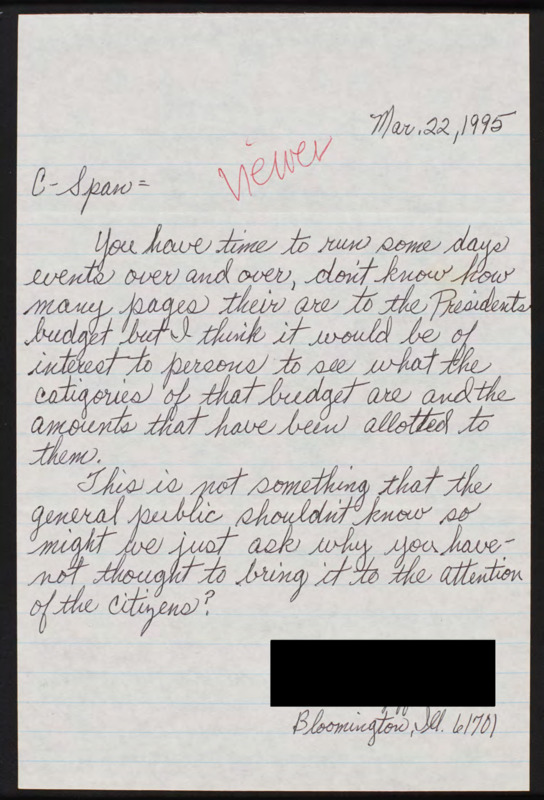 Mar. 22, 1995
viewer
C-Span =
You have time to run some days
events over and over, don't know how
many pages their are to the Presidents
budget but I think it would be of
interest to persons to see what the
catigories of that budget are and the
amounts that have been allotted to
them.
This is not something that the
general public shouldn't know so
might we just ask why you have-
not thought to bring it to the attention
of the citizens?
Bloomington, Ill. 61701